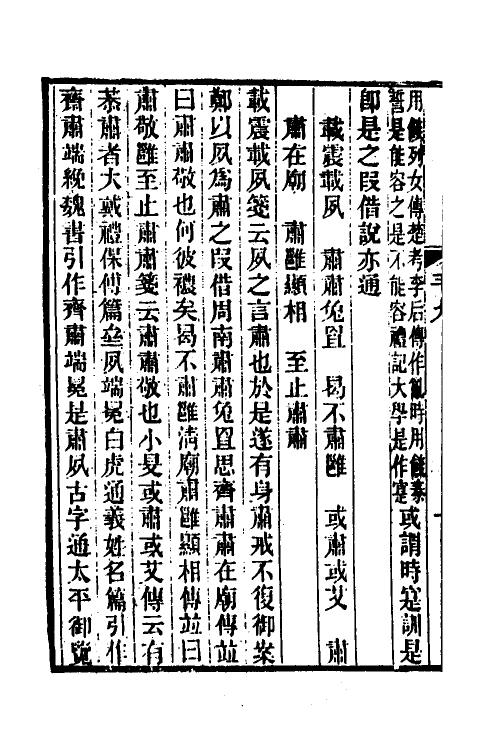 用餽列女傳楚考李后傳作時用餽
是能容之是不能容禮記大學是作寔
或謂時寔訓是
即是之叚借說亦通
載震載夙　肅肅兔罝　曷不肅雝　或肅或艾　肅
肅在廟　肅雝顯相　至止肅肅
載震載夙箋云夙之言肅也於是遂有身肅戒不復御案
鄭以夙為肅之叚借周南肅肅兔罝思齊肅肅在廟傳並
曰肅肅敬也何彼襛矣曷不肅雝清廟肅雝顯相傳並曰
肅敬雝至止肅肅箋云肅肅敬也小旻或肅或艾傳云有
恭肅者大戴禮保傅篇夙端冕白虎通義姓名篇引作
齋肅端絻魏書引作齊肅端冕是肅夙古字通太平御覽